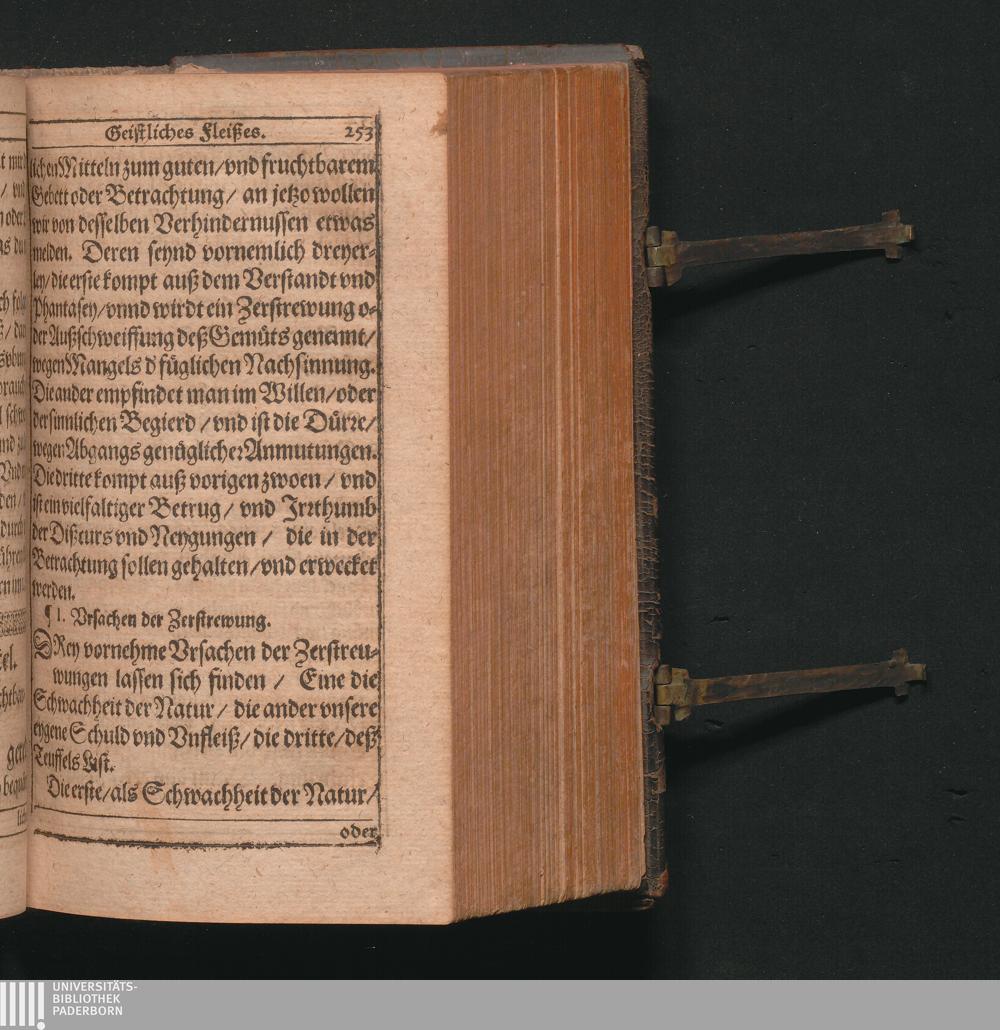 Geistliches Fleißes. 253
lichen Mitteln zum guten/vnd fruchtbarem
Gebett oder Betrachtung/ an jetzo wollen
wir von desselben Verhindernussen etwas
melden. Deren seynd vornemlich dreyer-
ley/die erste kompt auß dem Verstandt vnd
Phantasey/vnnd wirdt ein Zerstrewung o-
der Außschweiffung deß Gemüts genennt/
wegen Mangels d' füglichen Nachsinnung.
Die ander empfindet man im Willen/oder
der sinnlichen Begierd /vnd ist die Dürre/
wegen Abgangs genüglicher Anmutungen.
Die dritte kompt auß vorigen zwoen / vnd
ist ein vielfaltiger Betrug/ vnd Irrthumb
der Dißcurs vnd Neygungen / die in der
Betrachtung sollen gehalten/vnd erwecket
werden.
¶ 1. Vrsachen der Zerstrewung.
DRey vornehme Vrsachen der Zerstreu-
wungen lassen sich finden / Eine die
Schwachheit der Natur/ die ander vnsere
eygene Schuld vnd Vnfleiß/die dritte/deß
Teuffels List.
Die erste/als Schwachheit der Natur/
oder
UNIVERSITÄTS-
BIBLIOTHEK
PADERBORN